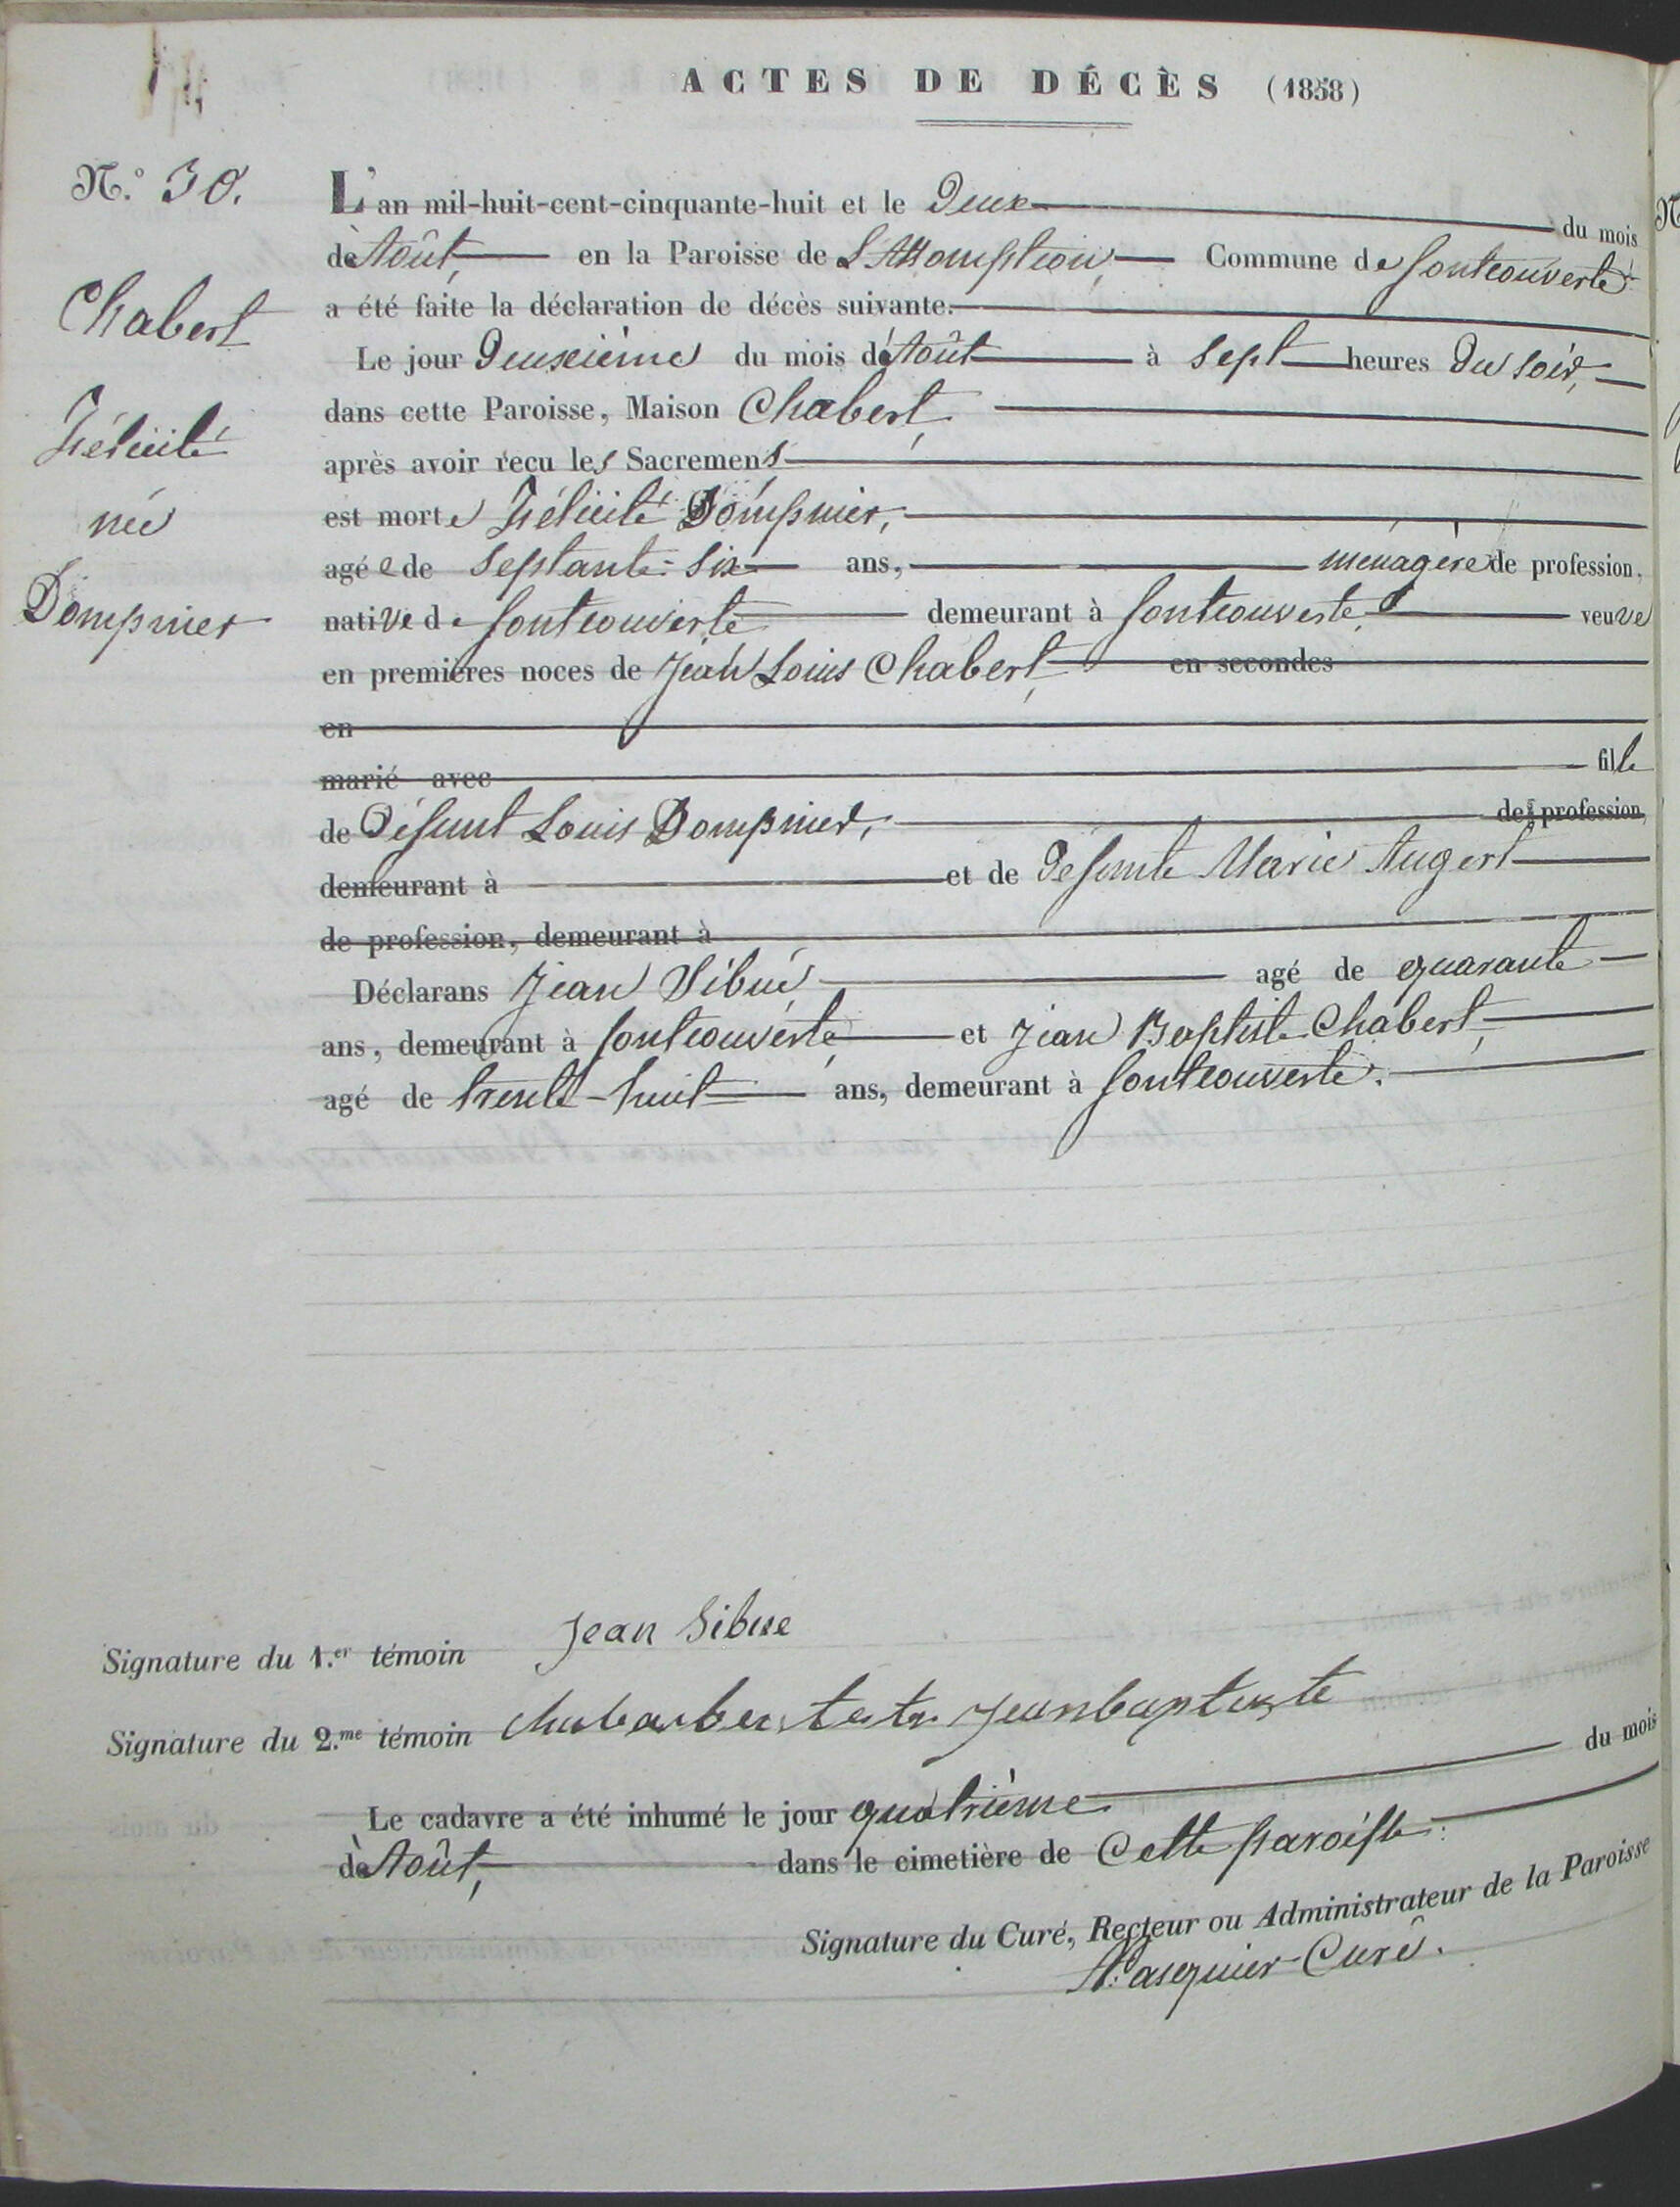 ACTES DE DÉCÈS (1858)
N.º 30.
Chabert
Félicité
née
Dompnier
L'an mil-huit-cent-cinquante-huit et le Deux du mois
de Août, en la Paroisse de L'Assomption, Commune de fontcouverte
a été faite la déclaration de décès suivante.
Le jour Deuxième du mois d'Août à sept heures Du soir,
dans cette Paroisse, Maison Chabert,
après avoir reçu les Sacremens
est morte Félicité Dompnier,
agée de septante-six ans, ménagère de profession,
native de fontcouverte demeurant à fontcouverte, veuve
en premières noces de Jean Louis Chabert, en secondes
en
marié avec fille
de Défunt Louis Dompnier, de profession,
demeurant à et de Defunte Marie Augert
de profession, demeurant à
Déclarans Jean Sibué agé de quarante
ans, demeurant à fontcouverte, et Jean Baptiste Chabert,
agé de trente-huit ans, demeurant à fontcouverte.
Signature du 1.er témoin Jean Sibue
Signature du 2.me témoin Jeanbaptiste
Le cadavre a été inhumé le jour quatrième du mois
de Août, dans le cimetière de Cette paroisse.
Signature du Curé, Recteur ou Administrateur de la Paroisse
Pasquier Curé.